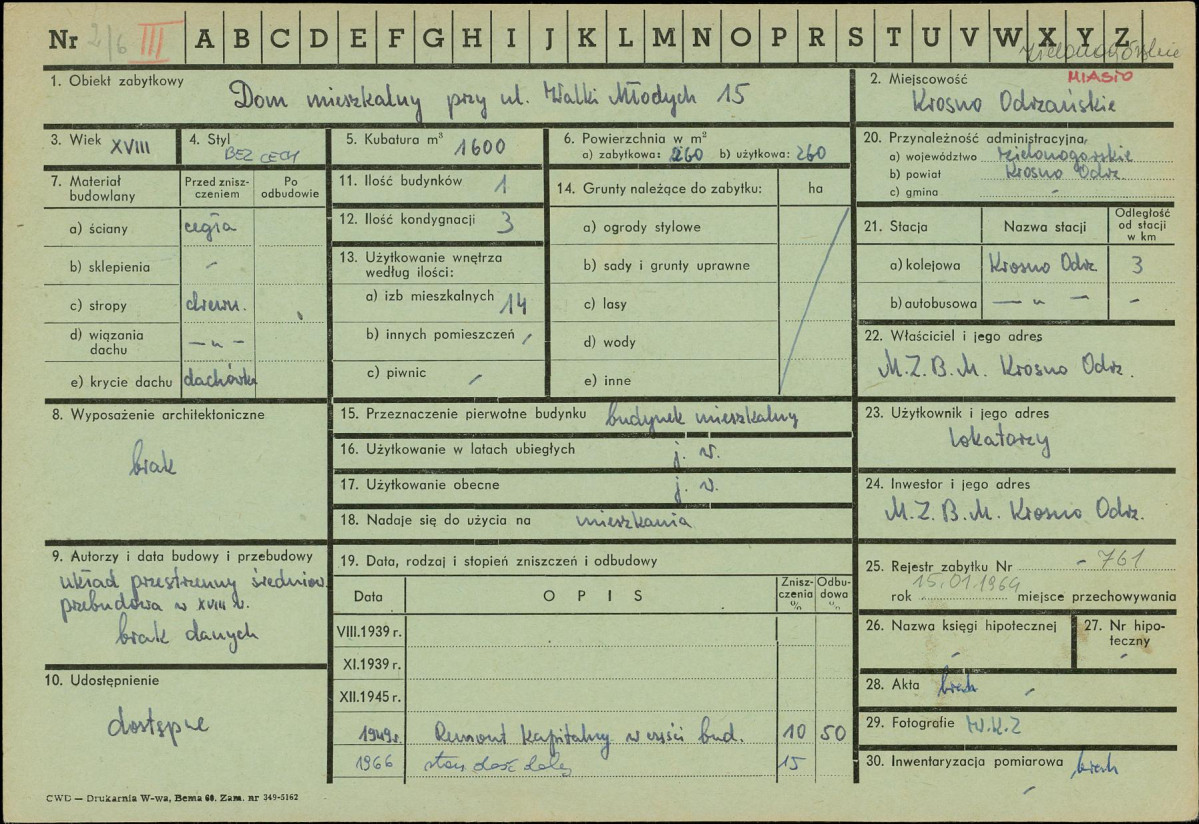 Nr 2/6 III A B C D E F G H I J K L M N O P R S T U V W X Y Z
zielonogórskie
1. Obiekt zabytkowy
Dom mieszkalny przy ul. Walki Młodych 15
2. Miejscowość MIASTO
Krosno Odrzańskie
3. Wiek XVIII
4. Styl
BEZ CECH
5. Kubatura m³ 1600
6. Powierzchnia w m²
a) zabytkowa: 260 b) użytkowa: 260
20. Przynależność administracyjna
a) województwo zielonogorskie
b) powiat Krosno Odrz.
c) gmina -
7. Materiał budowlany
Przed zniszczeniem
Po odbudowie
a) ściany cegła
b) sklepienia -
c) stropy drewn.
d) wiązania dachu — „ —
e) krycie dachu dachówka
11. Ilość budynków 1
12. Ilość kondygnacji 3
13. Użytkowanie wnętrza
według ilości:
a) izb mieszkalnych 14
b) innych pomieszczeń -
c) piwnic -
14. Grunty należące do zabytku: ha
a) ogrody stylowe
b) sady i grunty uprawne
c) lasy
d) wody
e) inne
21. Stacja Nazwa stacji Odległość od stacji w km
a) kolejowa Krosno Odrz 3
b) autobusowa — „ — -
22. Właściciel i jego adres
M.Z.B.M. Krosno Odrz.
8. Wyposażenie architektoniczne
brak
15. Przeznaczenie pierwotne budynku budynek mieszkalny
16. Użytkowanie w latach ubiegłych j. w.
17. Użytkowanie obecne j. w.
18. Nadaje się do użycia na mieszkania
23. Użytkownik i jego adres
lokatorzy
24. Inwestor i jego adres
M.Z.B.M. Krosno Odrz.
9. Autorzy i data budowy i przebudowy
układ przestrzenny średniow.
przebudowa w XVIII w.
brak danych
10. Udostępnienie
dostępne
19. Data, rodzaj i stopień zniszczeń i odbudowy
Data OPIS Zniszczenia % Odbudowa %
VIII.1939 r.
XI.1939 r.
XII.1945 r.
1949r. Remont kapitalny w części bud. 10 50
1966 stan dość 15
25. Rejestr zabytku Nr - 761
rok 15.01.1964 miejsce przechowywania
26. Nazwa księgi hipotecznej -
27. Nr hipoteczny -
28. Akta brak -
29. Fotografie W.K.Z
30. Inwentaryzacja pomiarowa brak
CWD — Drukarnia W-wa, Bema 60. Zam. nr 349-5162